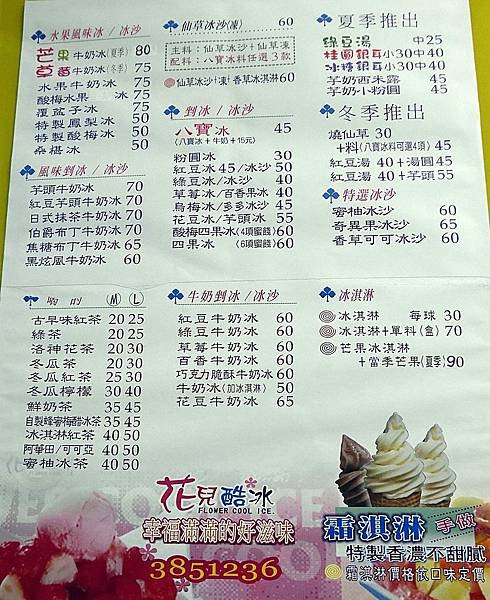 水果風味冰/冰沙
芒果牛奶冰(夏季) 80
草莓牛奶冰(冬季) 75
水果牛奶冰 75
酸梅水果冰 75
覆盆子冰 75
特製鳳梨冰 50
特製酸梅冰 50
桑椹冰 50
風味剉冰/冰沙
芋頭牛奶冰 70
紅豆芋頭牛奶冰 70
日式抹茶牛奶冰 70
伯爵布丁牛奶冰 70
焦糖布丁牛奶冰 65
黑炫風牛奶冰 60
仙草冰沙(凍) 60
主料:仙草冰沙+仙草凍
配料:八寶冰料任選3款
仙草冰沙+凍+香草冰淇淋60
剉冰/冰沙
八寶冰 45
(八寶冰+牛奶+15元)
粉圓冰 30
紅豆冰45/冰沙50
綠豆冰/冰沙 40
草莓冰/百香果冰 40
烏梅冰/多多冰沙 45
花豆冰/芋頭冰 55
酸梅四果冰(4項蜜餞)60
四果冰 (6項蜜餞)60
夏季推出
綠豆湯 中25
桂圓銀耳小30中40
冰糖銀耳小30中40
芋奶西米露 45
芋奶小粉圓 45
冬季推出
燒仙草 30
+料(八寶冰料可選4項) 45
紅豆湯 40+湯圓45
紅豆湯 40+芋頭55
特選冰沙
蜜柚冰沙 60
奇異果冰沙 65
香草可可冰沙 60
喝的 M L
古早味紅茶 20 25
綠茶 20 25
洛神花茶 20 30
冬瓜茶 20 30
冬瓜紅茶 25 30
冬瓜檸檬 30 40
鮮奶茶 35 45
自製蜂蜜梅醋冰茶35 45
冰淇淋紅茶 40 50
阿華田/可可亞 40 50
蜜柚冰茶 40 50
牛奶剉冰/冰沙
紅豆牛奶冰 60
綠豆牛奶冰 60
草莓牛奶冰 60
百香牛奶冰 60
巧克力脆酥牛奶冰 60
牛奶冰(加冰淇淋) 50
花豆牛奶冰 65
冰淇淋
冰淇淋 每球 30
冰淇淋+單料(盒) 70
芒果冰淇淋
+當季芒果(夏季)90
花兒酷冰
FLOWER COOL ICE.
幸福滿滿的好滋味
3851236
霜淇淋 手做
特製香濃不甜膩
霜淇淋價格依口味定價